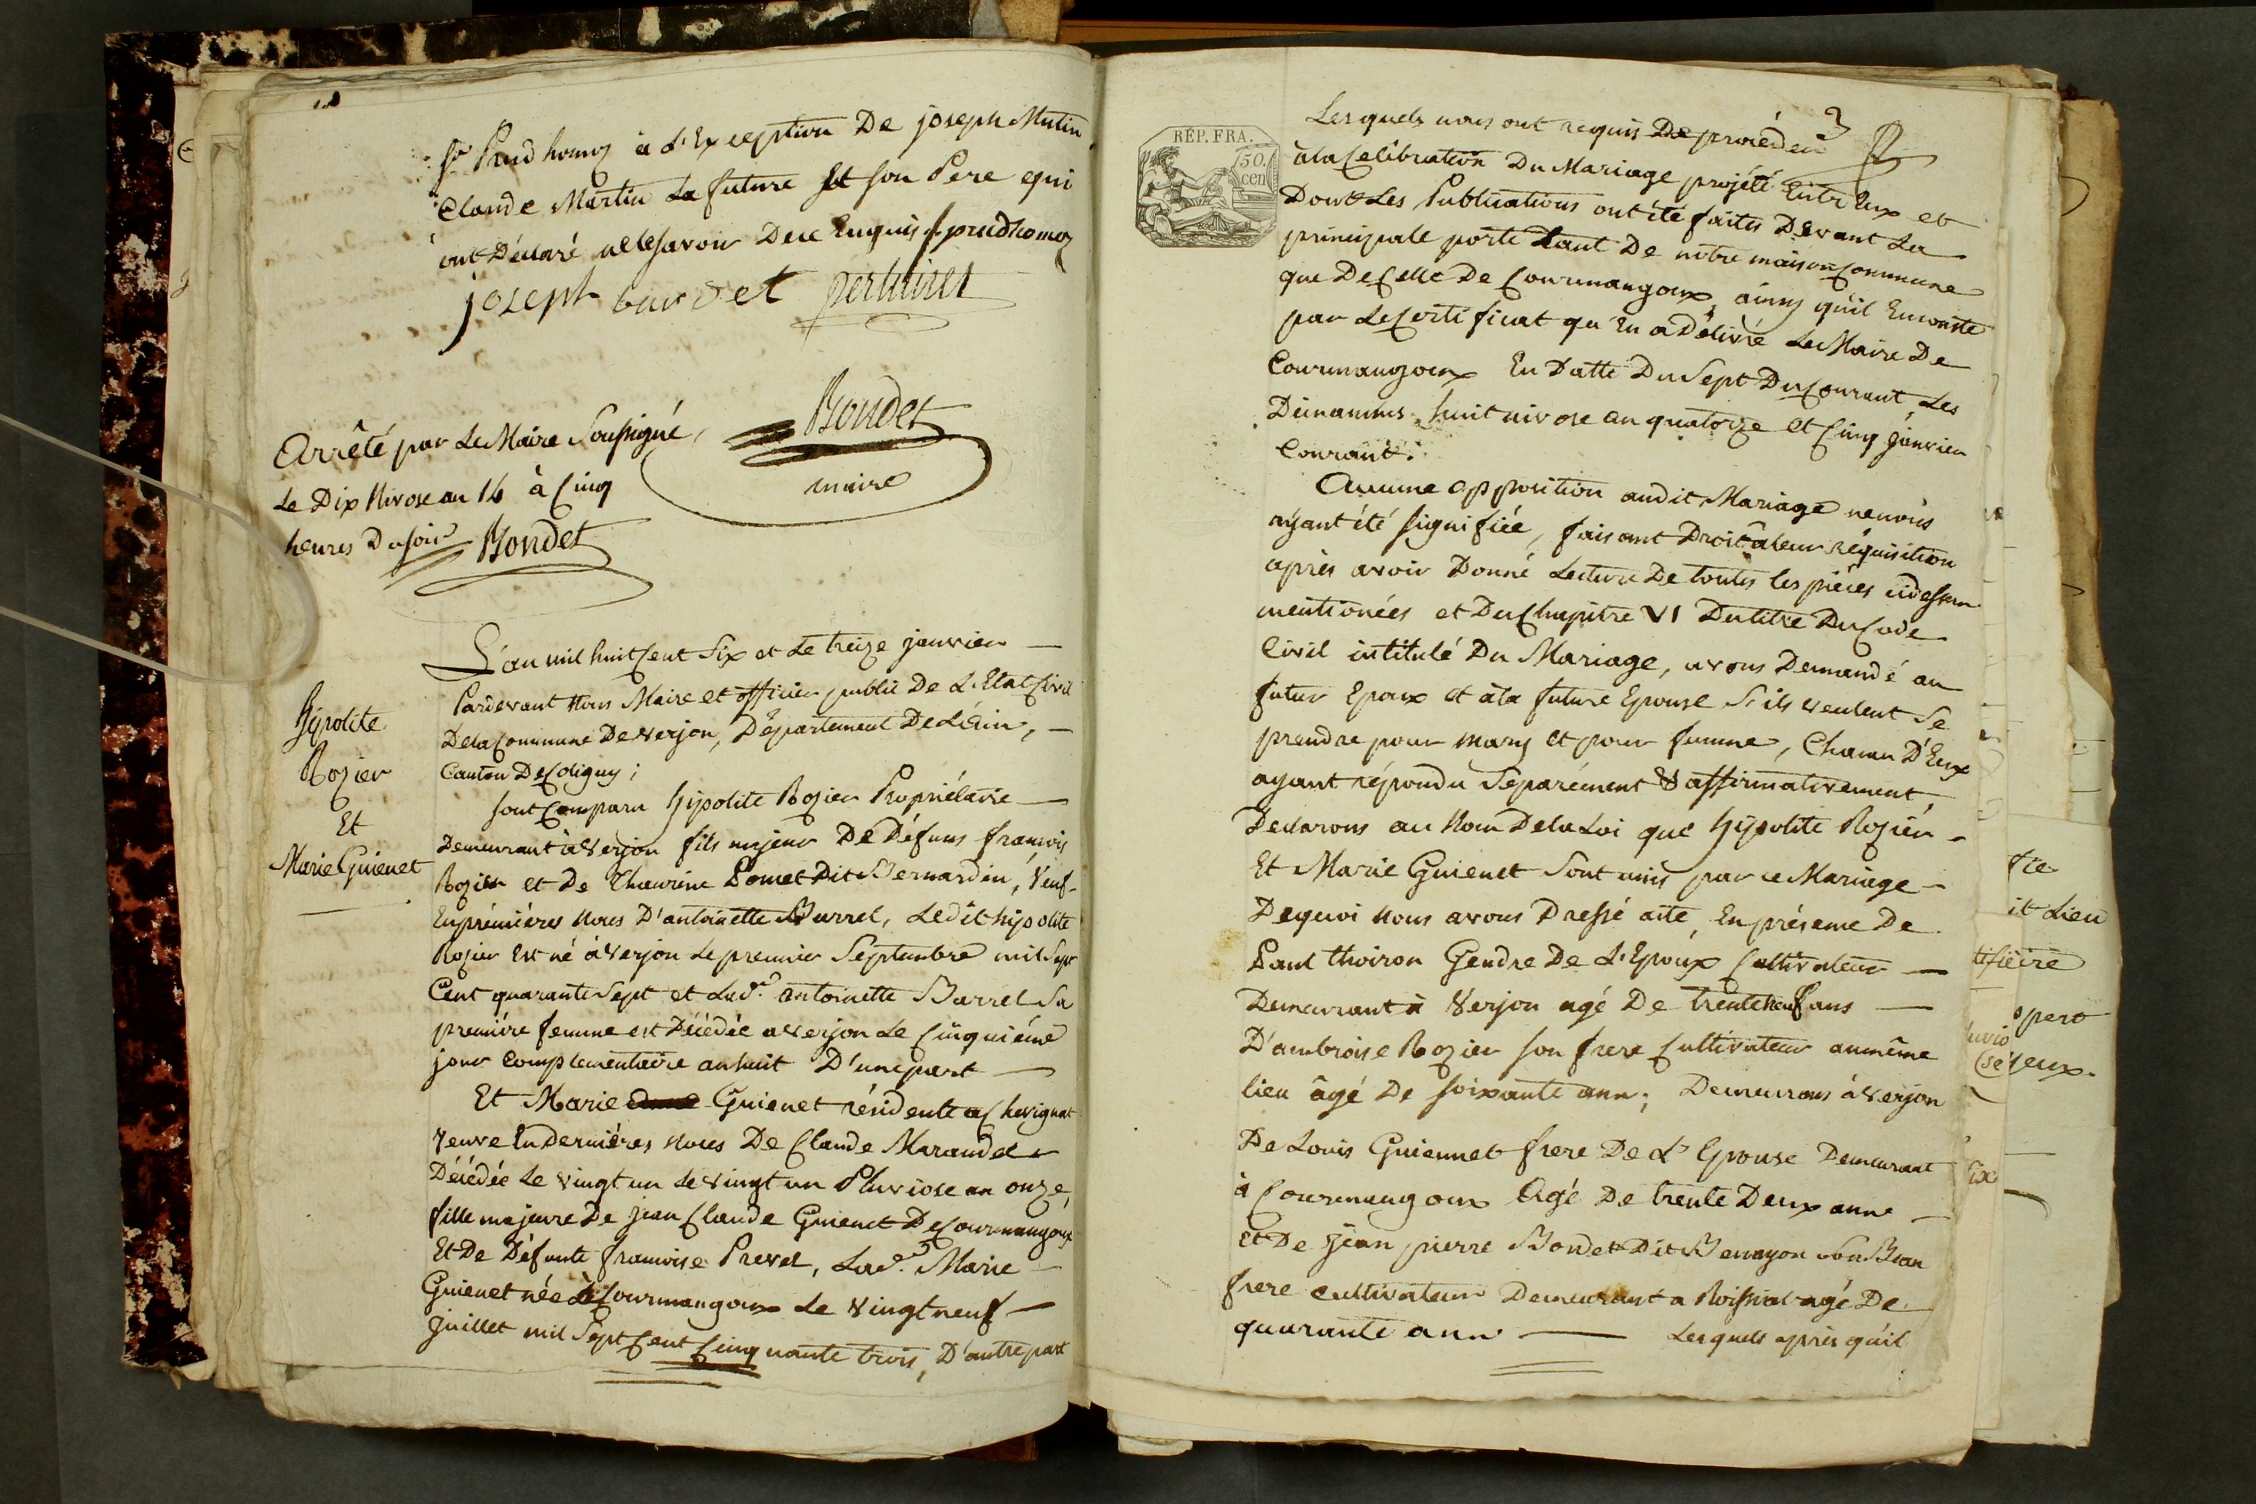 sr Prudhomy à L'Exception De joseph Mutin
Claude Martin La future Et son Pere qui
ont Déclaré nelesavoir Dece Enquis sr prudhomy
joseph burdet perturet
Bondet
maire
Arrêté par Le Maire Soussigné,
Le Dix Nivose an 14 à Cinq
heures Dusoir Bondet
Hypolite
Rozier
Et
Marie Guienet
L'an mil huit Cent Six et Le treize janvier
Pardevant Nous Maire et officier public De L'Etat Civil
Dela Commune De Verjon, Département De L'Ain,
Canton De Coligny;
sont Comparu hypolite Rozier Propriétaire
Demeurant à Verjon fils majeur De Défuns francois
Rozier et De Pomet Dit Bernardin, Veuf
En prémiéres Noces D'antoinette Burrel, Ledit hipolite
Rozier Est né à Verjon Le premier Septembre mil Sept
Cent quarante Sept et Lade. antoinette Barrel Sa
premiére femme est Décédée a Verjon Le Cinquiéme
jour Complementaire an huit D'une part
Et Marie Guienet résidente a Chevignat
Veuve En Derniéres Noces De Claude Marandet
Décédée Le Vingt un Le Vingt un Pluviose an onze,
fille majeure De Jean Claude Guienet De Courmangoux
Et De Défunte francoise Prevel, Lade. Marie
Guienet née à Courmangoux Le Vingt neuf
Juillet mil Sept Cent Cinquante trois, D'autre part
3
RÉP. FRA.
50.
cen
Lesquels nous ont requis De procéder
à la Celébration Du Mariage projété Entr'Eux et
Dont Les Publications ont été faites Devant La
principale porte tant De notre maison Commune
que De Celle De Courmangoux, ainsy qu'il En conste
par Le Certificat qu'En a Délivré Le Maire De
Courmangoux En Datte Du Sept Du Courant, Les
Dimanches huit nivose an quatorze et Cinq janvier
Courant.
Aucune opposition audit Mariage ne nous
ayant été Signifiée, faisant Droit à leur réquisition
après avoir Donné Lecture De toutes les piéces cidessus
mentionées et Du Chapitre VI Du titre Du Code
Civil intitulé Du Mariage, avons Demandé au
futur Epoux et à la future Epouse S'ils veulent Se
prendre pour mary et pour femme, Chacun D'Eux
ayant répondu Séparément & affirmativement,
Déclarons au Nom De la Loi que hypolite Rozier
Et Marie Guienet Sont unis par ce Mariage
De quoi Nous avons Dressé acte, En présence De
Paul thoiron Gendre De L'Epoux Cultivateur
Demeurant à Verjon agé De trente neuf ans
D'ambroise Rozier son frere Cultivateur au même
lieu âgé De soixante ans; Demeurans à Verjon
De Louis Guiennet frere De L'Epouse Demeurant
à Courmangoux Agé De trente Deux anne
Et De Jean pierre Bondet Dit Berrayon son Beau
frere cultivateur Demeurant a Roissiat agé De
quarante ann Lesquels après qu'il
fie
it Lieu
tifiéiré
pero